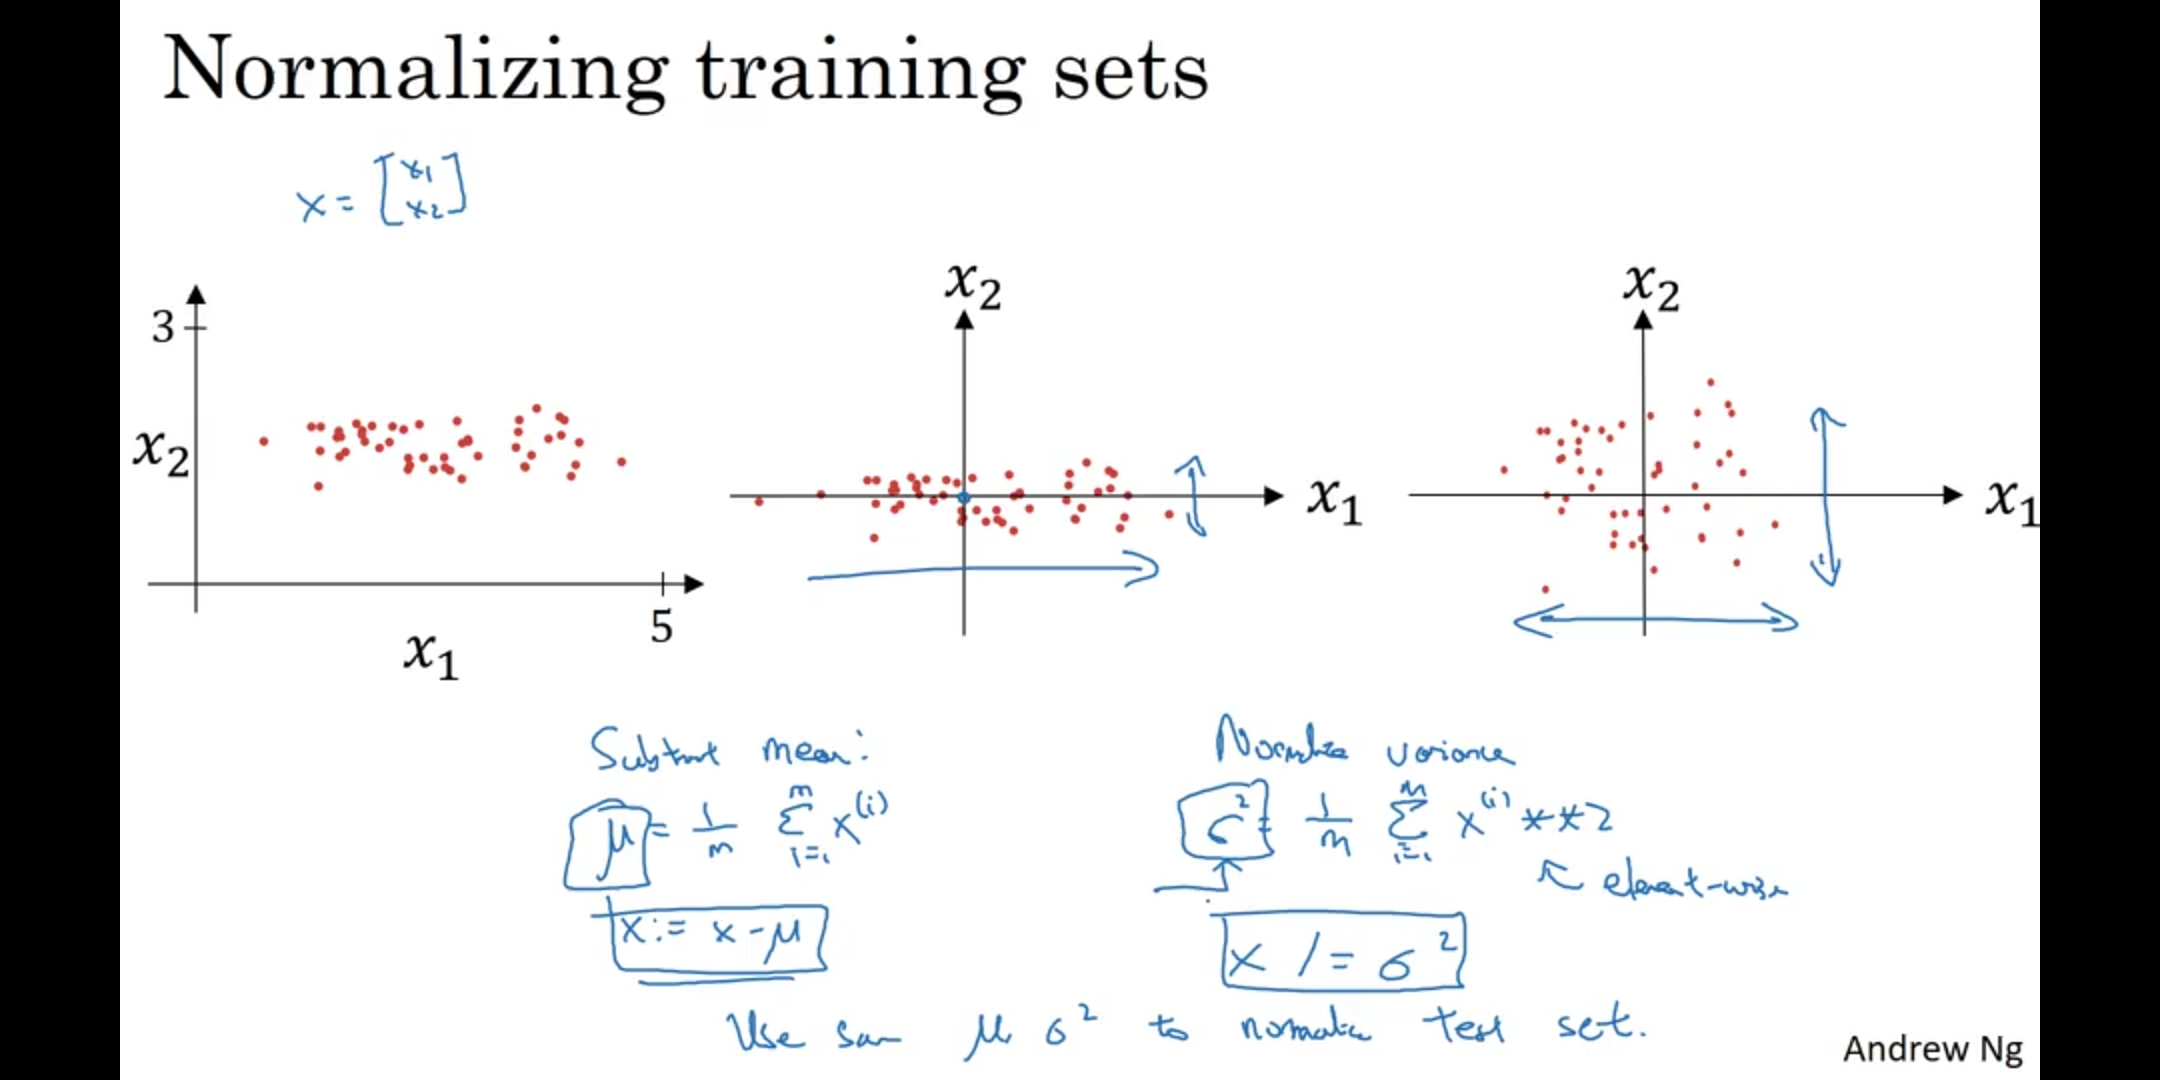 Normalizing training sets
x = [x1 x2]
3
x2
x1
5
x2
x1
x2
x1
Subtract mean:
μ = 1/m Σ i=1 m x(i)
x := x - μ
Normalize variance
σ² = 1/m Σ i=1 m x(i) **2
element-wise
x /= σ²
Use same μ, σ² to normalize test set.
Andrew Ng